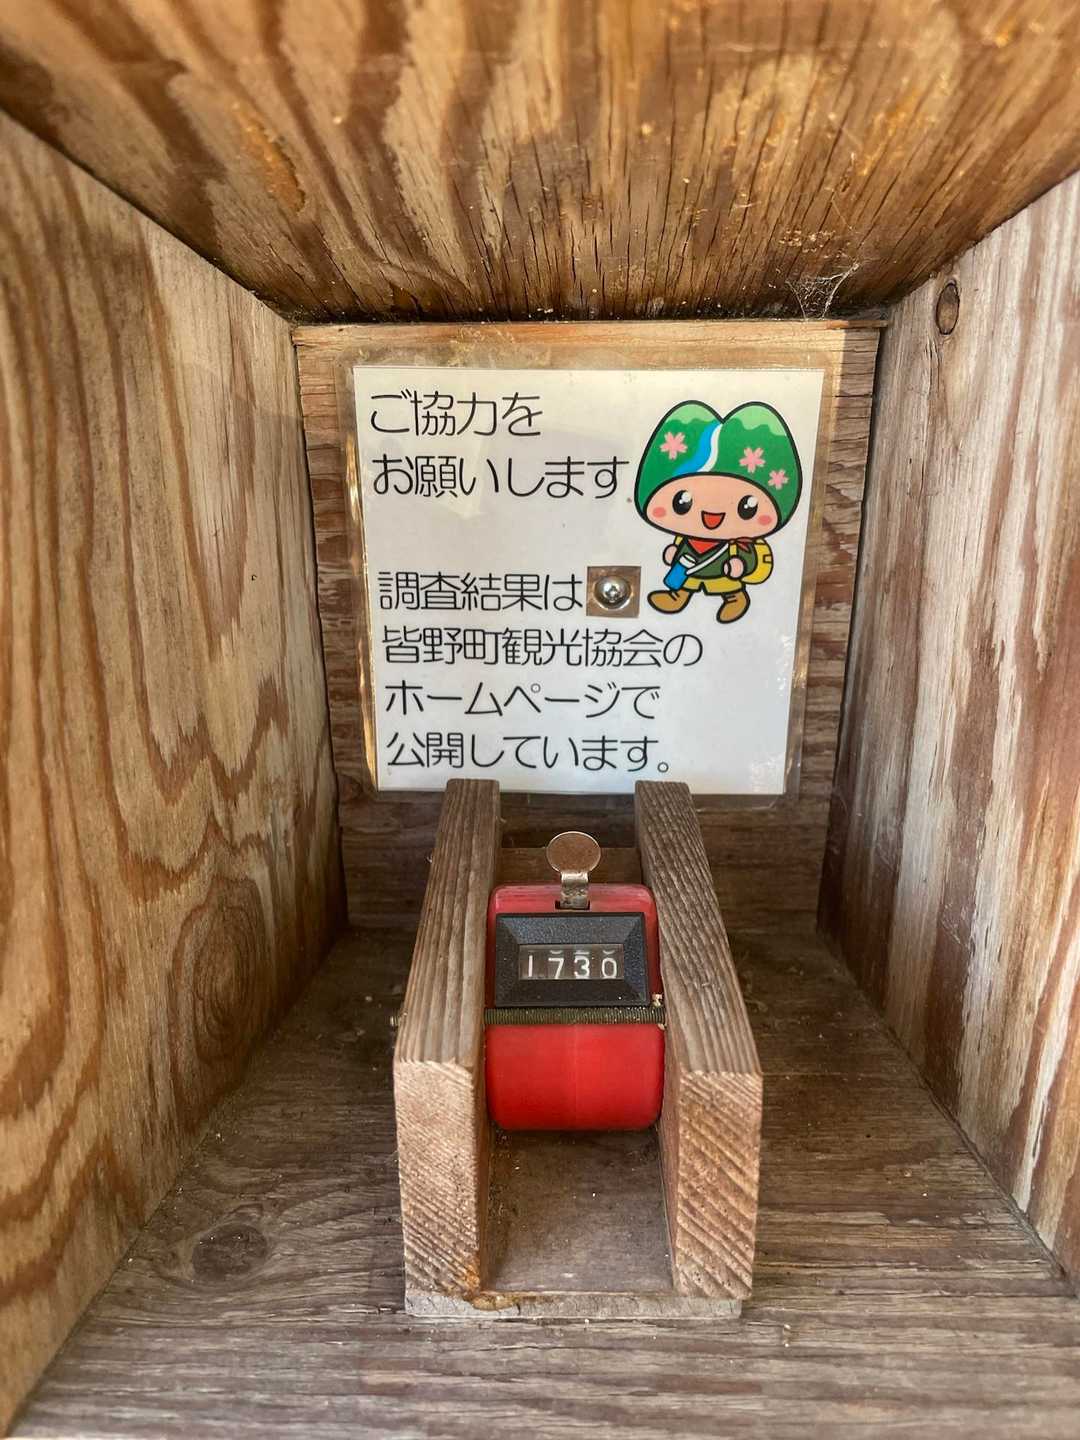 ご協力を
お願いします
調査結果は
皆野町観光協会の
ホームページで
公開しています。
1730